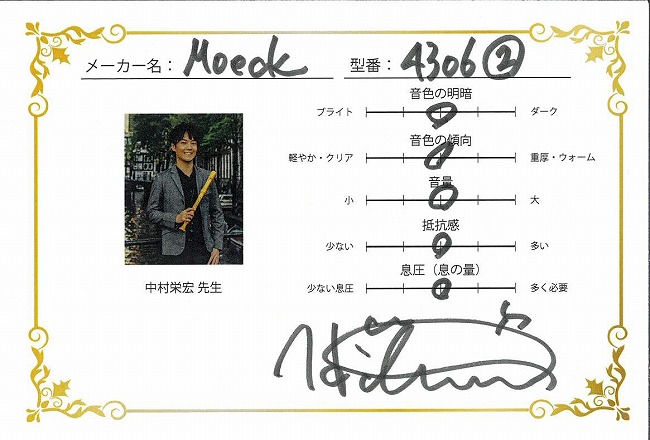 メーカー名： Moeck 型番： 4306②
音色の明暗
ブライト ダーク
音色の傾向
軽やか・クリア 重厚・ウォーム
音量
小 大
抵抗感
少ない 多い
息圧（息の量）
少ない息圧 多く必要
中村栄宏 先生